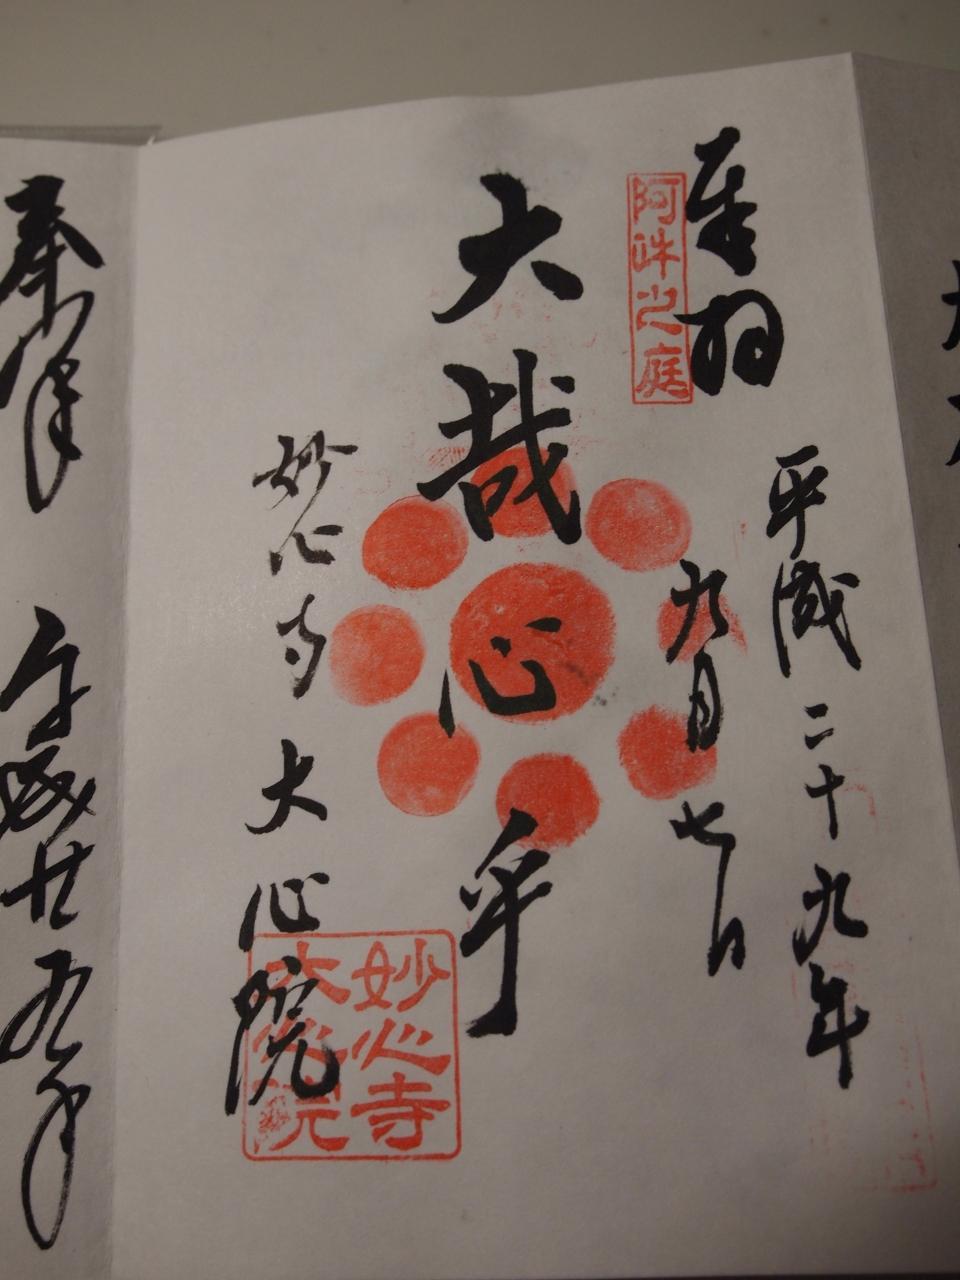 平成二十九年
九月七日
阿吽之庭
大哉心乎
妙心寺大心院
妙心寺
大心院
奉拝
平成廿